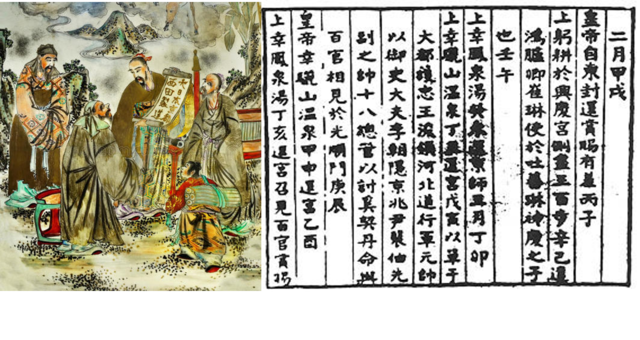 二月甲戌
皇帝自東封還賞賜有差丙子
上躬耕於興慶宮側盡三百步辛己還
鴻臚卿崔琳使於吐蕃琳神慶之子
也壬午
上幸鳳泉湯癸未還京師三月丁卯
上幸驪山溫泉丁 還宮戊寅以單于
大都護忠王浚領河北道行軍元帥
以御史大夫李朝隱京兆尹裴伷先
副之帥十八總管以討奚契丹命與
百官相見於光順門庚辰
皇帝幸驪山溫泉甲申還宮乙酉
上幸鳳泉湯丁亥還宮召見百官賞物